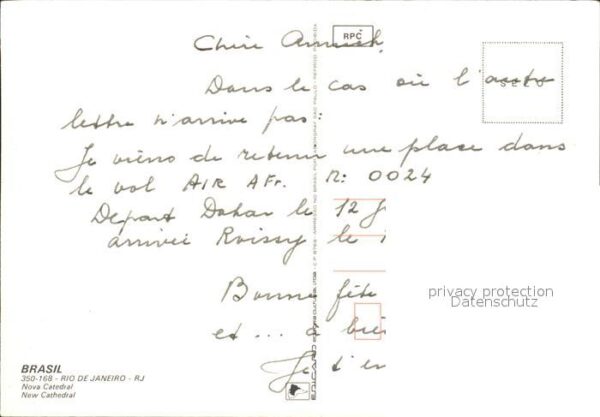 RPC
Chère Annick,
SELO
Dans le cas où l'autre
lettre n'arrive pas:
Je viens de retenir une place dans
le vol AIR AFr. N: 0024
Départ Dakar le 12 J
arrivée Roissy le
Bonne fête
et ... à bie
Je t'em
privacy protection
Datenschutz
BRASIL
350-168 - RIO DE JANEIRO - RJ
Nova Catedral
New Cathedral